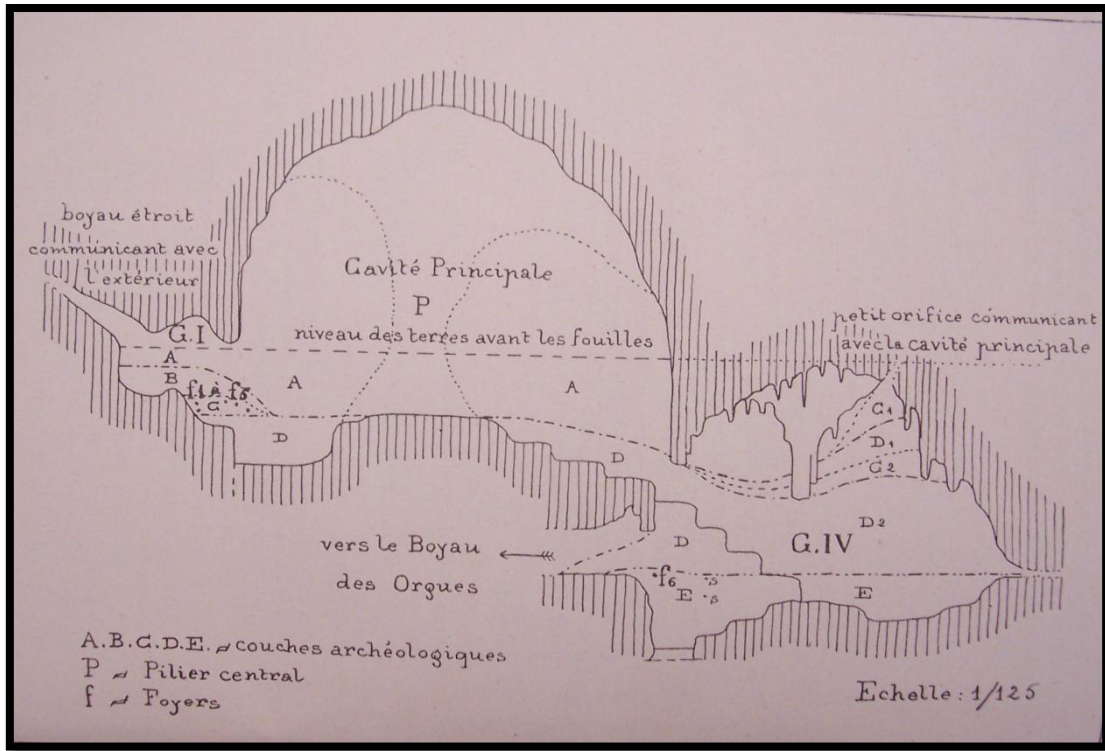 boyau étroit
communicant avec
l'extérieur
G.I
Cavité Principale
P
niveau des terres avant les fouilles
petit orifice communicant
avec la cavité principale
A
B
f1 à f5
C
A
A
D
D
C1
D1
C2
D2
G.IV
D
vers le Boyau
des Orgues
f6
s
E
s
E
A.B.C.D.E. couches archéologiques
P Pilier central
f Foyers
Echelle : 1/125